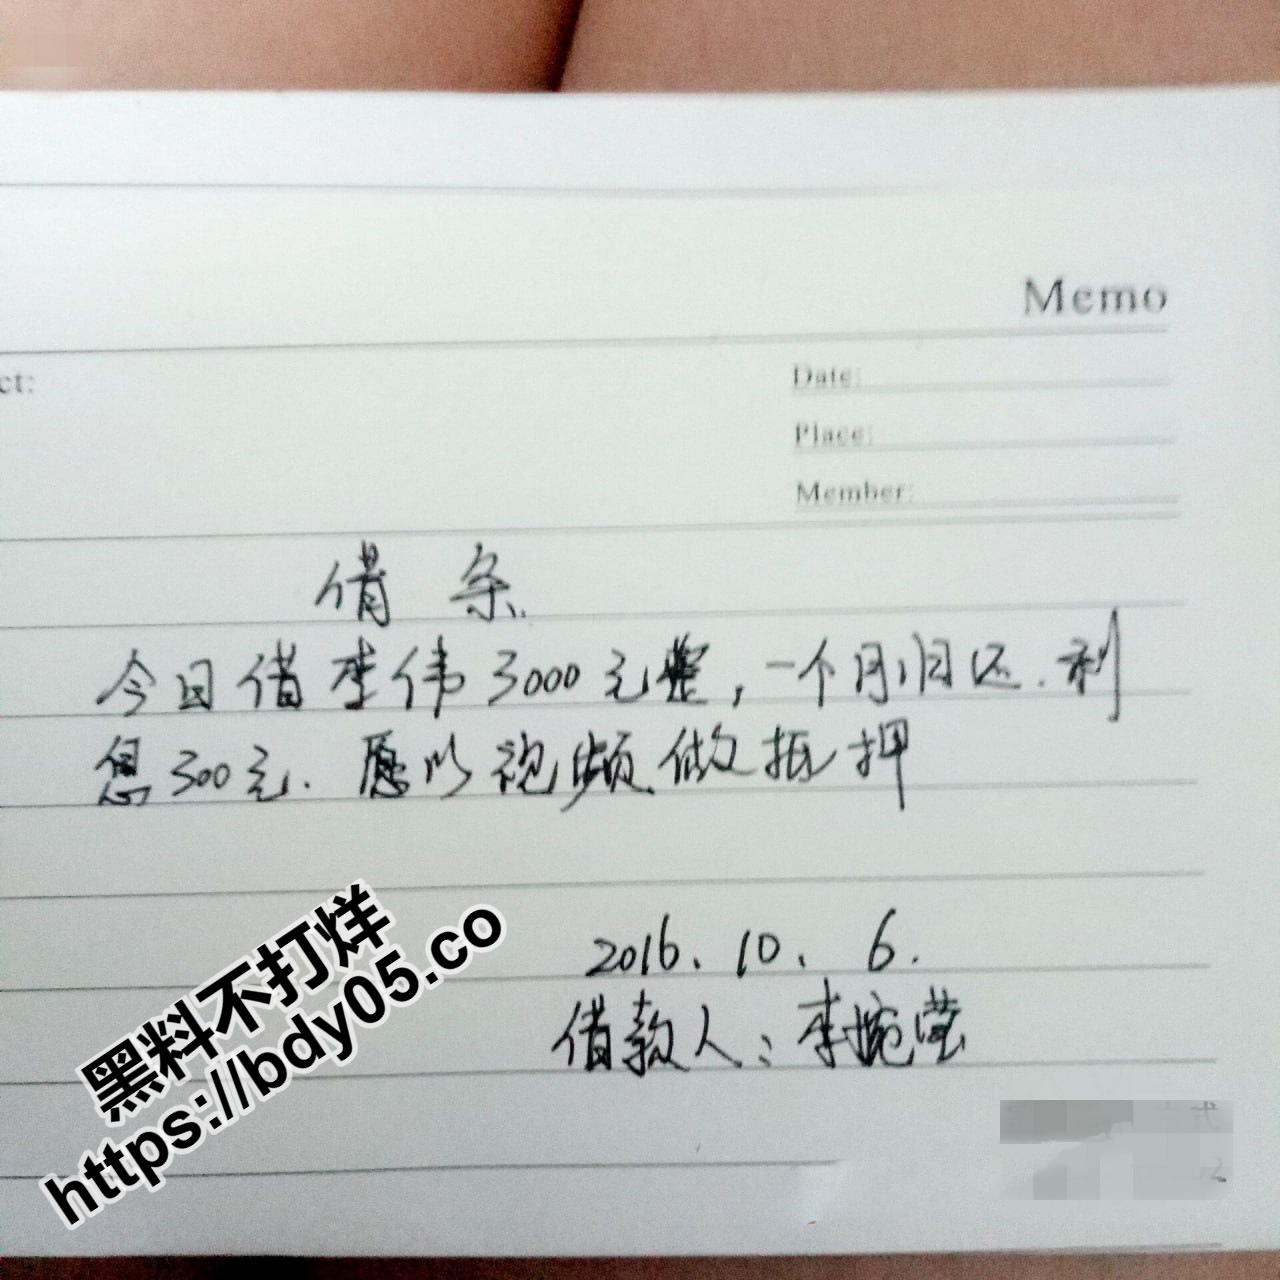 Memo
ct:
Date:
Place:
Member:
借条
今日借李伟3000元整,一个月归还.利
息300元.愿以视频做抵押
2016.10.6.
借款人:李婉莹
黑料不打烊
https://bdy05.co